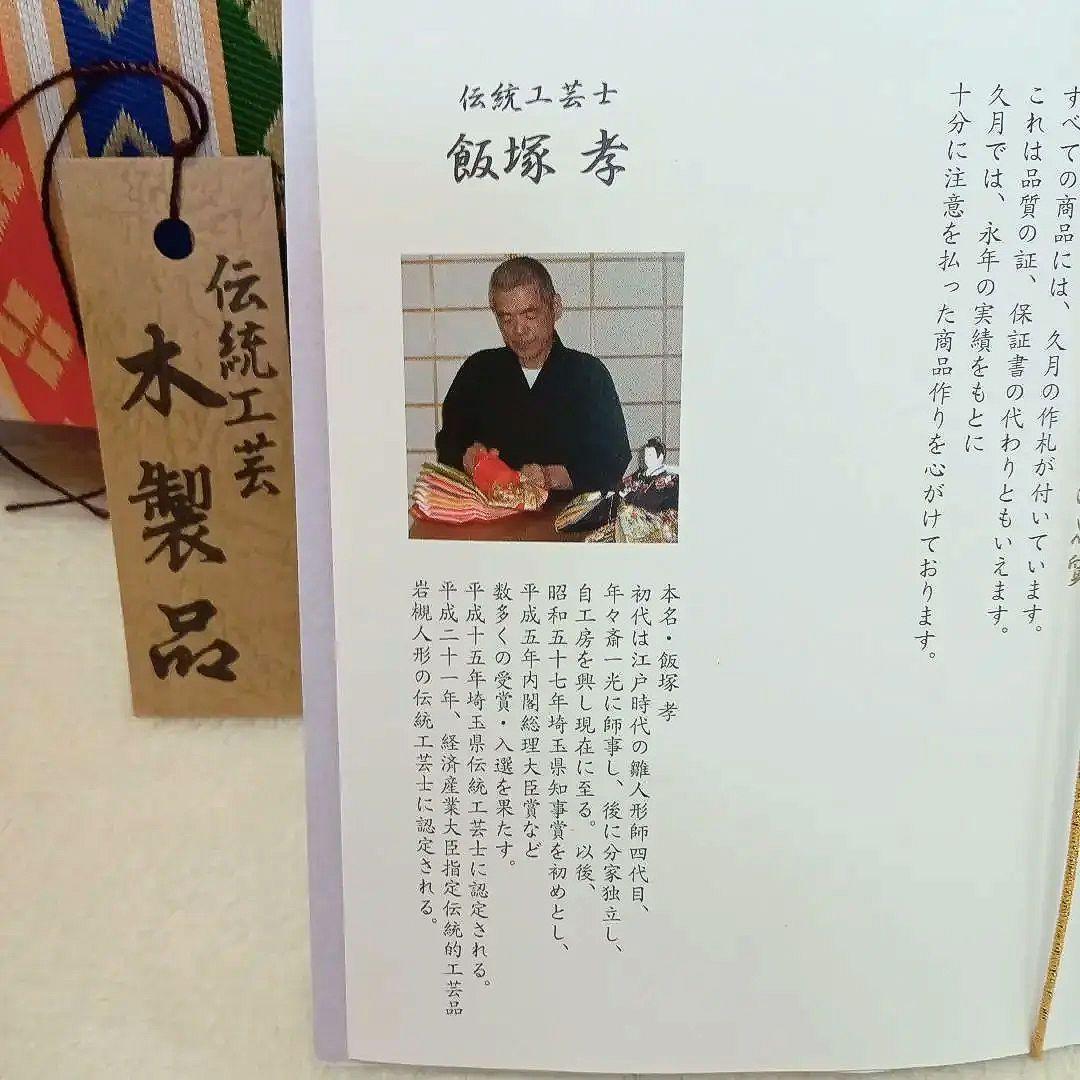 伝統工芸
木製品
伝統工芸士
飯塚 孝
本名・飯塚 孝
初代は江戸時代の雛人形師四代目、
年々斎一光に師事し、後に分家独立し、
自工房を興し現在に至る。以後、
昭和五十七年埼玉県知事賞を初めとし、
平成五年内閣総理大臣賞など
数多くの受賞・入選を果たす。
平成十五年埼玉県伝統工芸士に認定される。
平成二十一年、経済産業大臣指定伝統的工芸品
岩槻人形の伝統工芸士に認定される。
すべての商品には、久月の作札が付いています。
これは品質の証、保証書の代わりともいえます。
久月では、永年の実績をもとに
十分に注意を払った商品作りを心がけております。